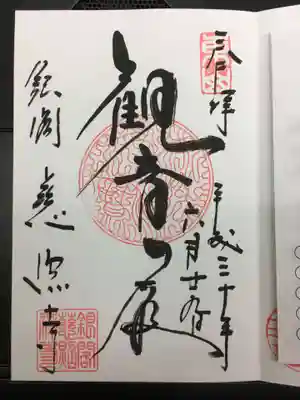 奉拝
平成三十年
六月十九日
観音殿
銀閣 慈照寺